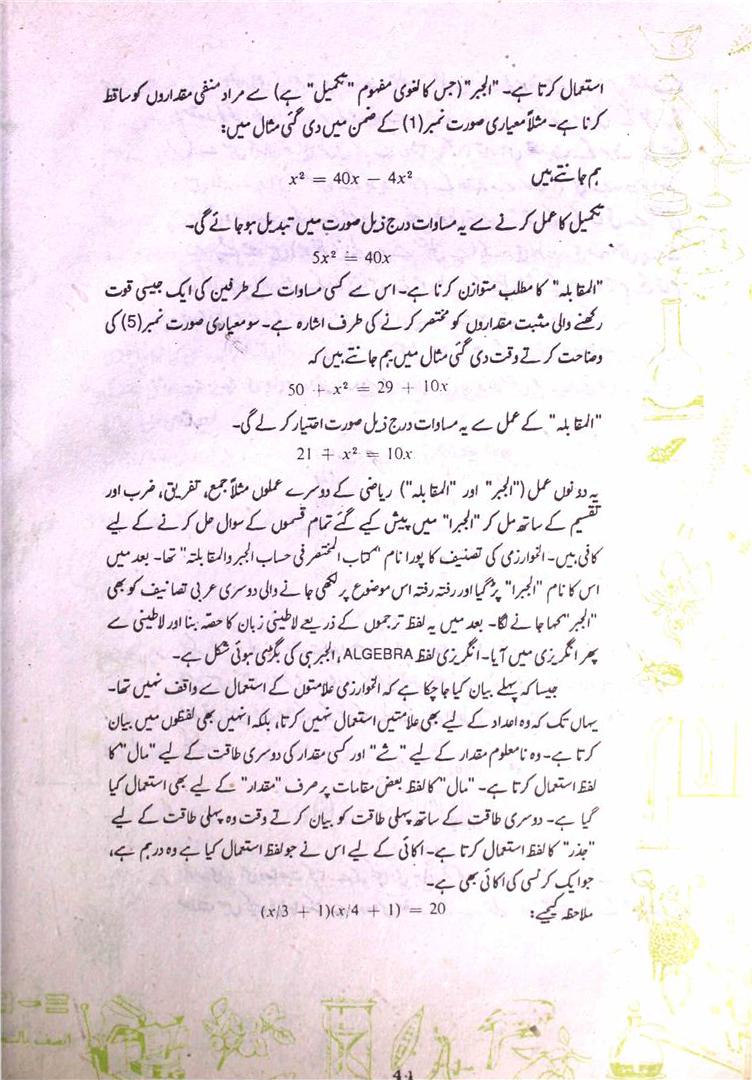 استعمال کرتا ہے۔ "الجبر" (جس کا لغوی مفہوم "تکمیل" ہے) سے مراد منفی مقداروں کو ساقط
کرنا ہے۔ مثلاً معیاری صورت نمبر (1) کے ضمن میں دی گئی مثال میں:
ہم جانتے ہیں x² = 40x − 4x²
تکمیل کا عمل کرنے سے یہ مساوات درج ذیل صورت میں تبدیل ہو جائے گی۔
5x² = 40x
"المقابلہ" کا مطلب متوازن کرنا ہے۔ اس سے کسی مساوات کے طرفین کی ایک جیسی قوت
رکھنے والی مثبت مقداروں کو مختصر کرنے کی طرف اشارہ ہے۔ سو معیاری صورت نمبر (5) کی
وضاحت کرتے وقت دی گئی مثال میں ہم جانتے ہیں کہ
50 + x² = 29 + 10x
"المقابلہ" کے عمل سے یہ مساوات درج ذیل صورت اختیار کر لے گی۔
21 + x² = 10x
یہ دونوں عمل ("الجبر" اور "المقابلہ") ریاضی کے دوسرے عملوں مثلاً جمع، تفریق، ضرب اور
تقسیم کے ساتھ مل کر "الجبرا" میں پیش کیے گئے تمام قسموں کے سوال حل کرنے کے لیے
کافی ہیں۔ الخوارزمی کی تصنیف کا پورا نام "کتاب المختصر فی حساب الجبر والمقابلتہ" تھا۔ بعد میں
اس کا نام "الجبرا" پڑ گیا اور رفتہ رفتہ اس موضوع پر لکھی جانے والی دوسری عربی تصانیف کو بھی
"الجبر" کہا جانے لگا۔ بعد میں یہ لفظ ترجموں کے ذریعے لاطینی زبان کا حصہ بنا اور لاطینی سے
پھر انگریزی میں آیا۔ انگریزی لفظ ALGEBRA، الجبر ہی کی بگڑی ہوئی شکل ہے۔
جیسا کہ پہلے بیان کیا جا چکا ہے کہ الخوارزمی علامتوں کے استعمال سے واقف نہیں تھا۔
یہاں تک کہ وہ اعداد کے لیے بھی علامتیں استعمال نہیں کرتا، بلکہ انہیں بھی لفظوں میں بیان
کرتا ہے۔ وہ نامعلوم مقدار کے لیے "شے" اور کسی مقدار کی دوسری طاقت کے لیے "مال" کا
لفظ استعمال کرتا ہے۔ "مال" کا لفظ بعض مقامات پر صرف "مقدار" کے لیے بھی استعمال کیا
گیا ہے۔ دوسری طاقت کے ساتھ پہلی طاقت کو بیان کرتے وقت وہ پہلی طاقت کے لیے
"جذر" کا لفظ استعمال کرتا ہے۔ اکائی کے لیے اس نے جو لفظ استعمال کیا ہے وہ درہم ہے،
جو ایک کرنسی کی اکائی بھی ہے۔
ملاحظہ کیجیے: (x/3 + 1)(x/4 + 1) = 20